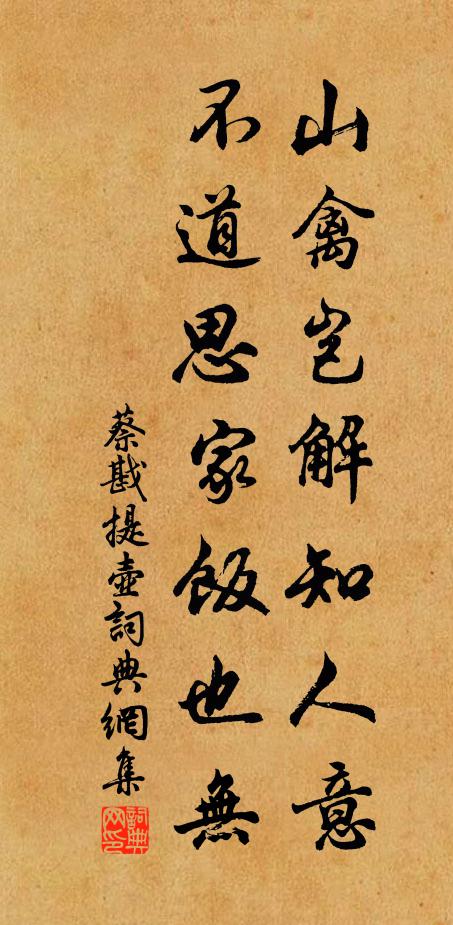 山禽岂解知人意
不道思家飯也無
蔡戡提壺詞典網集
詞典网印